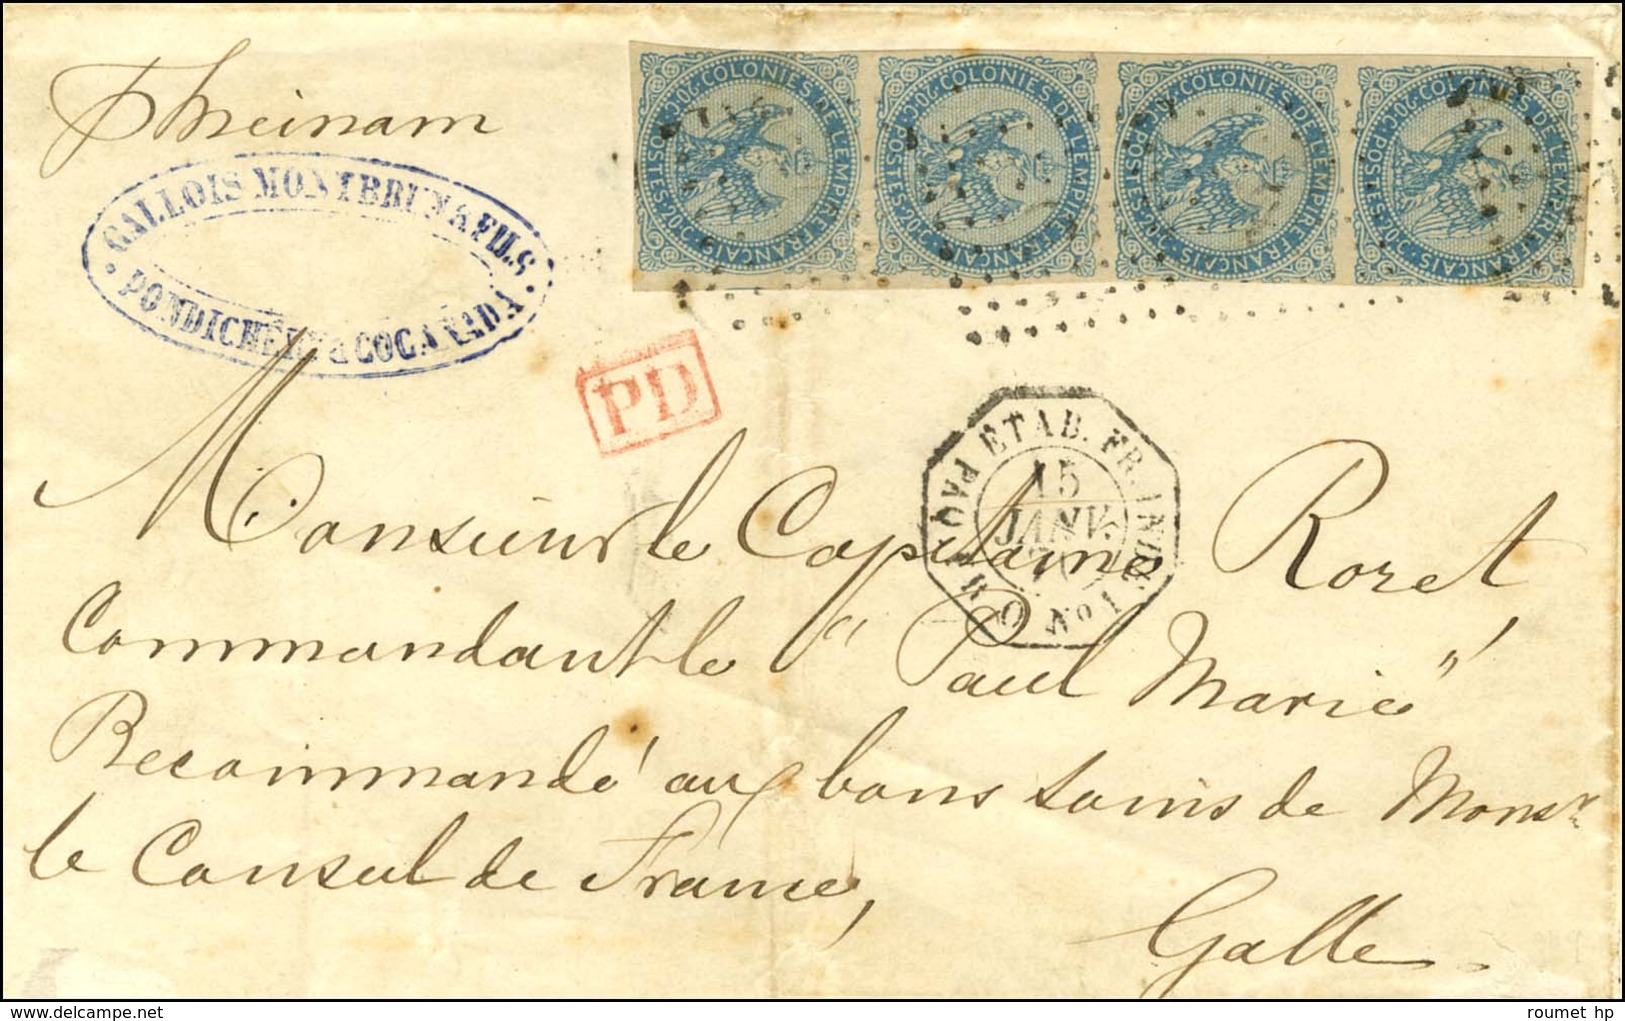 Theinam
GALLOIS MONTBRUN & FILS
PONDICHÉRY & COCANADA
COLONIES DE L'EMPIRE FRANÇAIS · POSTES · 20C
COLONIES DE L'EMPIRE FRANÇAIS · POSTES · 20C
COLONIES DE L'EMPIRE FRANÇAIS · POSTES · 20C
COLONIES DE L'EMPIRE FRANÇAIS · POSTES · 20C
PD
ETAB. FR. INDE
15
JANV.
PAQ. No 1
Monsieur le Capitaine Roret,
Commandant le "Paul Marie"
Recommandé aux bons soins de Monsr
le Consul de France,
Galle.
roumet hp